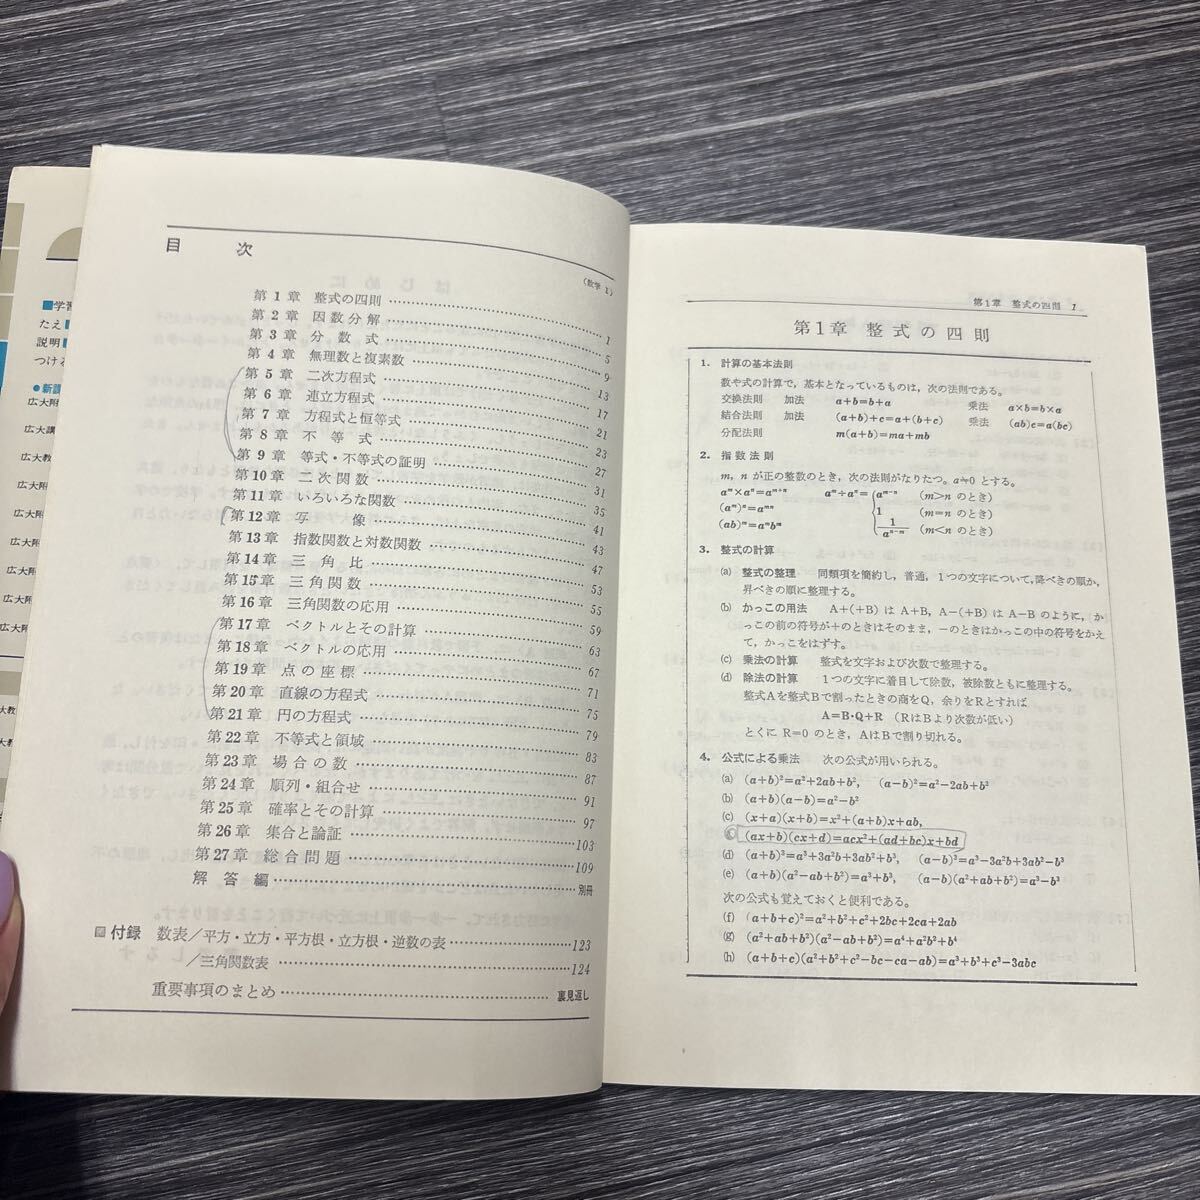 ■学習
たえ
説明
つける
●新課
広大附
広大講
広大教
広大附
大附
広大附
広大附
広大附
大教
大附
目 次
(数学 I)
第 1 章 整式の四則 1
第 2 章 因数分解 5
第 3 章 分数式 9
第 4 章 無理数と複素数 13
第 5 章 二次方程式 17
第 6 章 連立方程式 21
第 7 章 方程式と恒等式 23
第 8 章 不等式 27
第 9 章 等式・不等式の証明 31
第 10 章 二次関数 35
第 11 章 いろいろな関数 41
第 12 章 写像 43
第 13 章 指数関数と対数関数 47
第 14 章 三角比 53
第 15 章 三角関数 55
第 16 章 三角関数の応用 59
第 17 章 ベクトルとその計算 63
第 18 章 ベクトルの応用 67
第 19 章 点の座標 71
第 20 章 直線の方程式 75
第 21 章 円の方程式 79
第 22 章 不等式と領域 83
第 23 章 場合の数 87
第 24 章 順列・組合せ 91
第 25 章 確率とその計算 97
第 26 章 集合と論証 103
第 27 章 総合問題 109
解答編 別冊
付録 数表/平方・立方・平方根・立方根・逆数の表 123
/三角関数表 124
重要事項のまとめ 裏見返し
第1章 整式の四則 1
第1章 整式の四則
1. 計算の基本法則
数や式の計算で,基本となっているものは,次の法則である。
交換法則 加法 a+b=b+a 乗法 a×b=b×a
結合法則 加法 (a+b)+c=a+(b+c) 乗法 (ab)c=a(bc)
分配法則 m(a+b)=ma+mb
2. 指数法則
m, n が正の整数のとき,次の法則がなりたつ。a≠0 とする。
aᵐ×aⁿ=aᵐ⁺ⁿ aᵐ÷aⁿ= { aᵐ⁻ⁿ (m>n のとき)
(aᵐ)ⁿ=aᵐⁿ 1 (m=n のとき)
(ab)ᵐ=aᵐbᵐ 1/aⁿ⁻ᵐ (m<n のとき)
3. 整式の計算
(a) 整式の整理 同類項を簡約し,普通,1つの文字について,降べきの順か,
昇べきの順に整理する。
(b) かっこの用法 A+(+B) は A+B, A-(+B) は A-B のように,か
っこの前の符号が+のときはそのまま,-のときはかっこの中の符号をかえ
て,かっこをはずす。
(c) 乗法の計算 整式を文字および次数で整理する。
(d) 除法の計算 1つの文字に着目して除数,被除数ともに整理する。
整式Aを整式Bで割ったときの商をQ,余りをRとすれば
A=B・Q+R (RはBより次数が低い)
とくに R=0 のとき,AはBで割り切れる。
4. 公式による乗法 次の公式が用いられる。
(a) (a+b)²=a²+2ab+b², (a-b)²=a²-2ab+b²
(b) (a+b)(a-b)=a²-b²
(c) (x+a)(x+b)=x²+(a+b)x+ab,
(ax+b)(cx+d)=acx²+(ad+bc)x+bd
(d) (a+b)³=a³+3a²b+3ab²+b³, (a-b)³=a³-3a²b+3ab²-b³
(e) (a+b)(a²-ab+b²)=a³+b³, (a-b)(a²+ab+b²)=a³-b³
次の公式も覚えておくと便利である。
(f) (a+b+c)²=a²+b²+c²+2bc+2ca+2ab
(g) (a²+ab+b²)(a²-ab+b²)=a⁴+a²b²+b⁴
(h) (a+b+c)(a²+b²+c²-bc-ca-ab)=a³+b³+c³-3abc